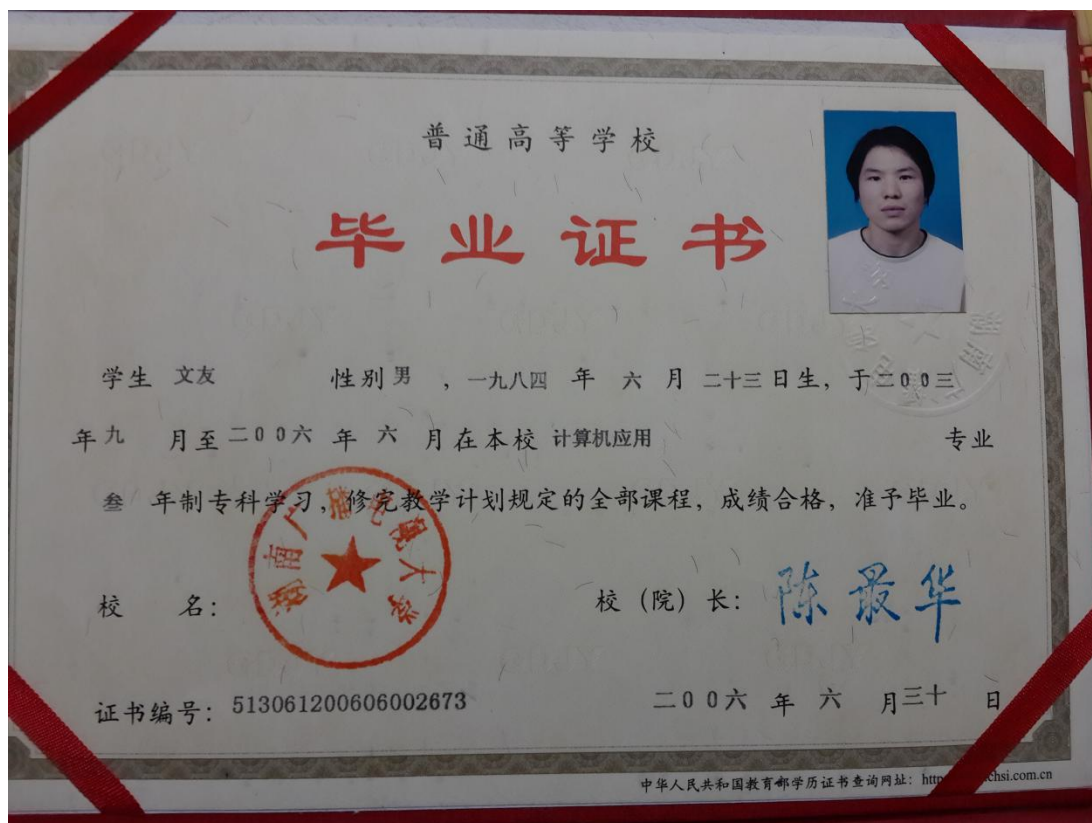 普通高等学校
毕业证书
学生 文友 性别 男 ，一九八四 年 六 月 二十三 日生，于二00三
年 九 月至 二00六 年 六 月在本校 计算机应用 专业
叁 年制专科学习，修完教学计划规定的全部课程，成绩合格，准予毕业。
湖南广播电视大学
校 名： 校（院）长：陈最华
证书编号：513061200606002673 二00六 年 六 月 三十 日
中华人民共和国教育部学历证书查询网址：http chsi.com.cn